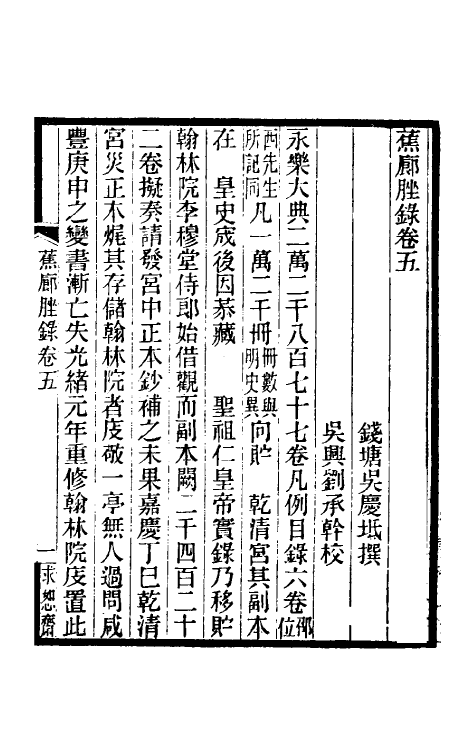 蕉廊脞錄卷五
錢塘吳慶坻撰
吳興劉承幹校
永樂大典二萬二千八百七十七卷凡例目錄六卷鄒位
西先生所記同凡一萬二千冊冊數與明史異向貯　乾清宮其副本
在　皇史宬後因恭藏　聖祖仁皇帝實錄乃移貯
翰林院李穆堂侍郎始借觀而副本闕二千四百二十
二卷擬奏請發宮中正本鈔補之未果嘉慶丁巳乾清
宮災正本燬其存儲翰林院者庋敬一亭無人過問咸
豐庚申之變書漸亡失光緒元年重修翰林院庋置此
蕉廊脞錄卷五
一
求恕齋